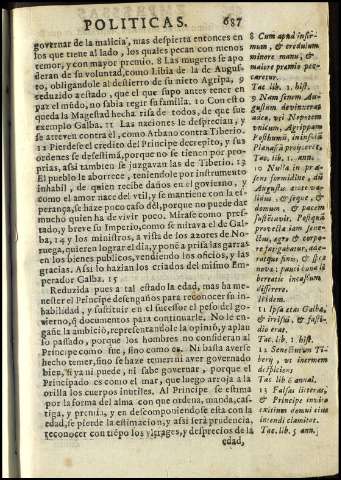 POLITICAS. 687
governar de la malicia, mas despierta entonces en
los que tiene al lado, los quales pecan con menos
temor, y con mayor premio. 8 Las mugeres se apo
deran de su voluntad, como Libia de la de Augus-
to, obligandole al destierro de su nieto Agripa, 9
reduzido a estado, que el que supo antes tener en
paz el mũdo, no sabia regir su familia. 10 Con esto
queda la Magestad hecha risa de todos, de que fue
exemplo Galba. 11 Las naciones le desprecian, y
se atreven contra él, como Arbano contra Tiberio.
12 Pierdese el credito del Principe decrepito, y sus
ordenes se desestimã, porque no se tienen por pro-
prias, assi tambien se juzgavan las de Tiberio. 13
El pueblo le aborrece, teniendole por instrumento
inhabil, de quien recibe daños en el govierno, y
como el amor nace del vtil, y se mantiene con la es-
perança, se haze poco caso dél, porque no puede dar
mucho quien ha de vivir poco. Mirase como pres-
tado, y breve su Imperio, como se mirava el de Gal-
ba, 14 y los ministros, a vista de los azores de No-
ruega, quieren lograr el dia, y ponẽ a prisa las garras
en los bienes publicos, vendiendo los oficios, y las
gracias. Assi lo hazian los criados del mismo Em-
perador Galba. 15
Reduzida pues a tal estado la edad, mas ha me-
nester el Principe desengaños para reconocer su in-
habilidad, y sustituir en el sucessor el peso del go-
vierno, q̃ documentos para continuarle. No le en-
gañe la ambiciõ, representandole la opiniõ, y aplau
so passado, porque los hombres no consideran al
Principe como fue, sino como es. Ni basta averse
hecho temer, sino se haze temer: ni aver governado
bien, si ya ni puede, ni sabe governar, porque el
Principado es como el mar, que luego arroja a la
orilla los cuerpos inutiles. Al Principe se estima
por la forma del alma con que ordena, manda, cas-
tiga, y premia, y en descomponiendose esta con la
edad, se pierde la estimacion, y assi serà prudencia,
reconocer con tiẽpo los vltrages, y desprecios de la
edad,
8 Cum apud infir-
mum, & credulum
minore metu, &
maiore præmio pec-
caretur.
Tac. lib. 1. hist.
9 Nam senem Au-
gustum devinxerat
adeò, vti Nepotem
vnicum, Agrippam
Posthumũ, in insulã
Planasiã proijceret.
Tac. lib. 1. ann.
10 Nulla in præ-
sens formidine, dũ
Augustus ætate va-
lidus, seque, &
domum, & pacem
sustentavit. Postquã
provecta iam senec-
tus, ægro & corpo-
re fatigabatur, ade-
ratque finis, & spes
novæ: pauci bona li-
bertatis incassum
disserere.
Ibidem.
11 Ipsa ætas Galbæ,
& irrisui, & fasti-
dio erat.
Tac. lib. 1. hist.
12 Senectutem Ti-
berij, vt inermem
despiciens
Tac. lib 6. annal.
13 Falsas litteras,
& Principe invito
exitium domui eius
intendi clamitat.
Tac. lib. 5. ann.